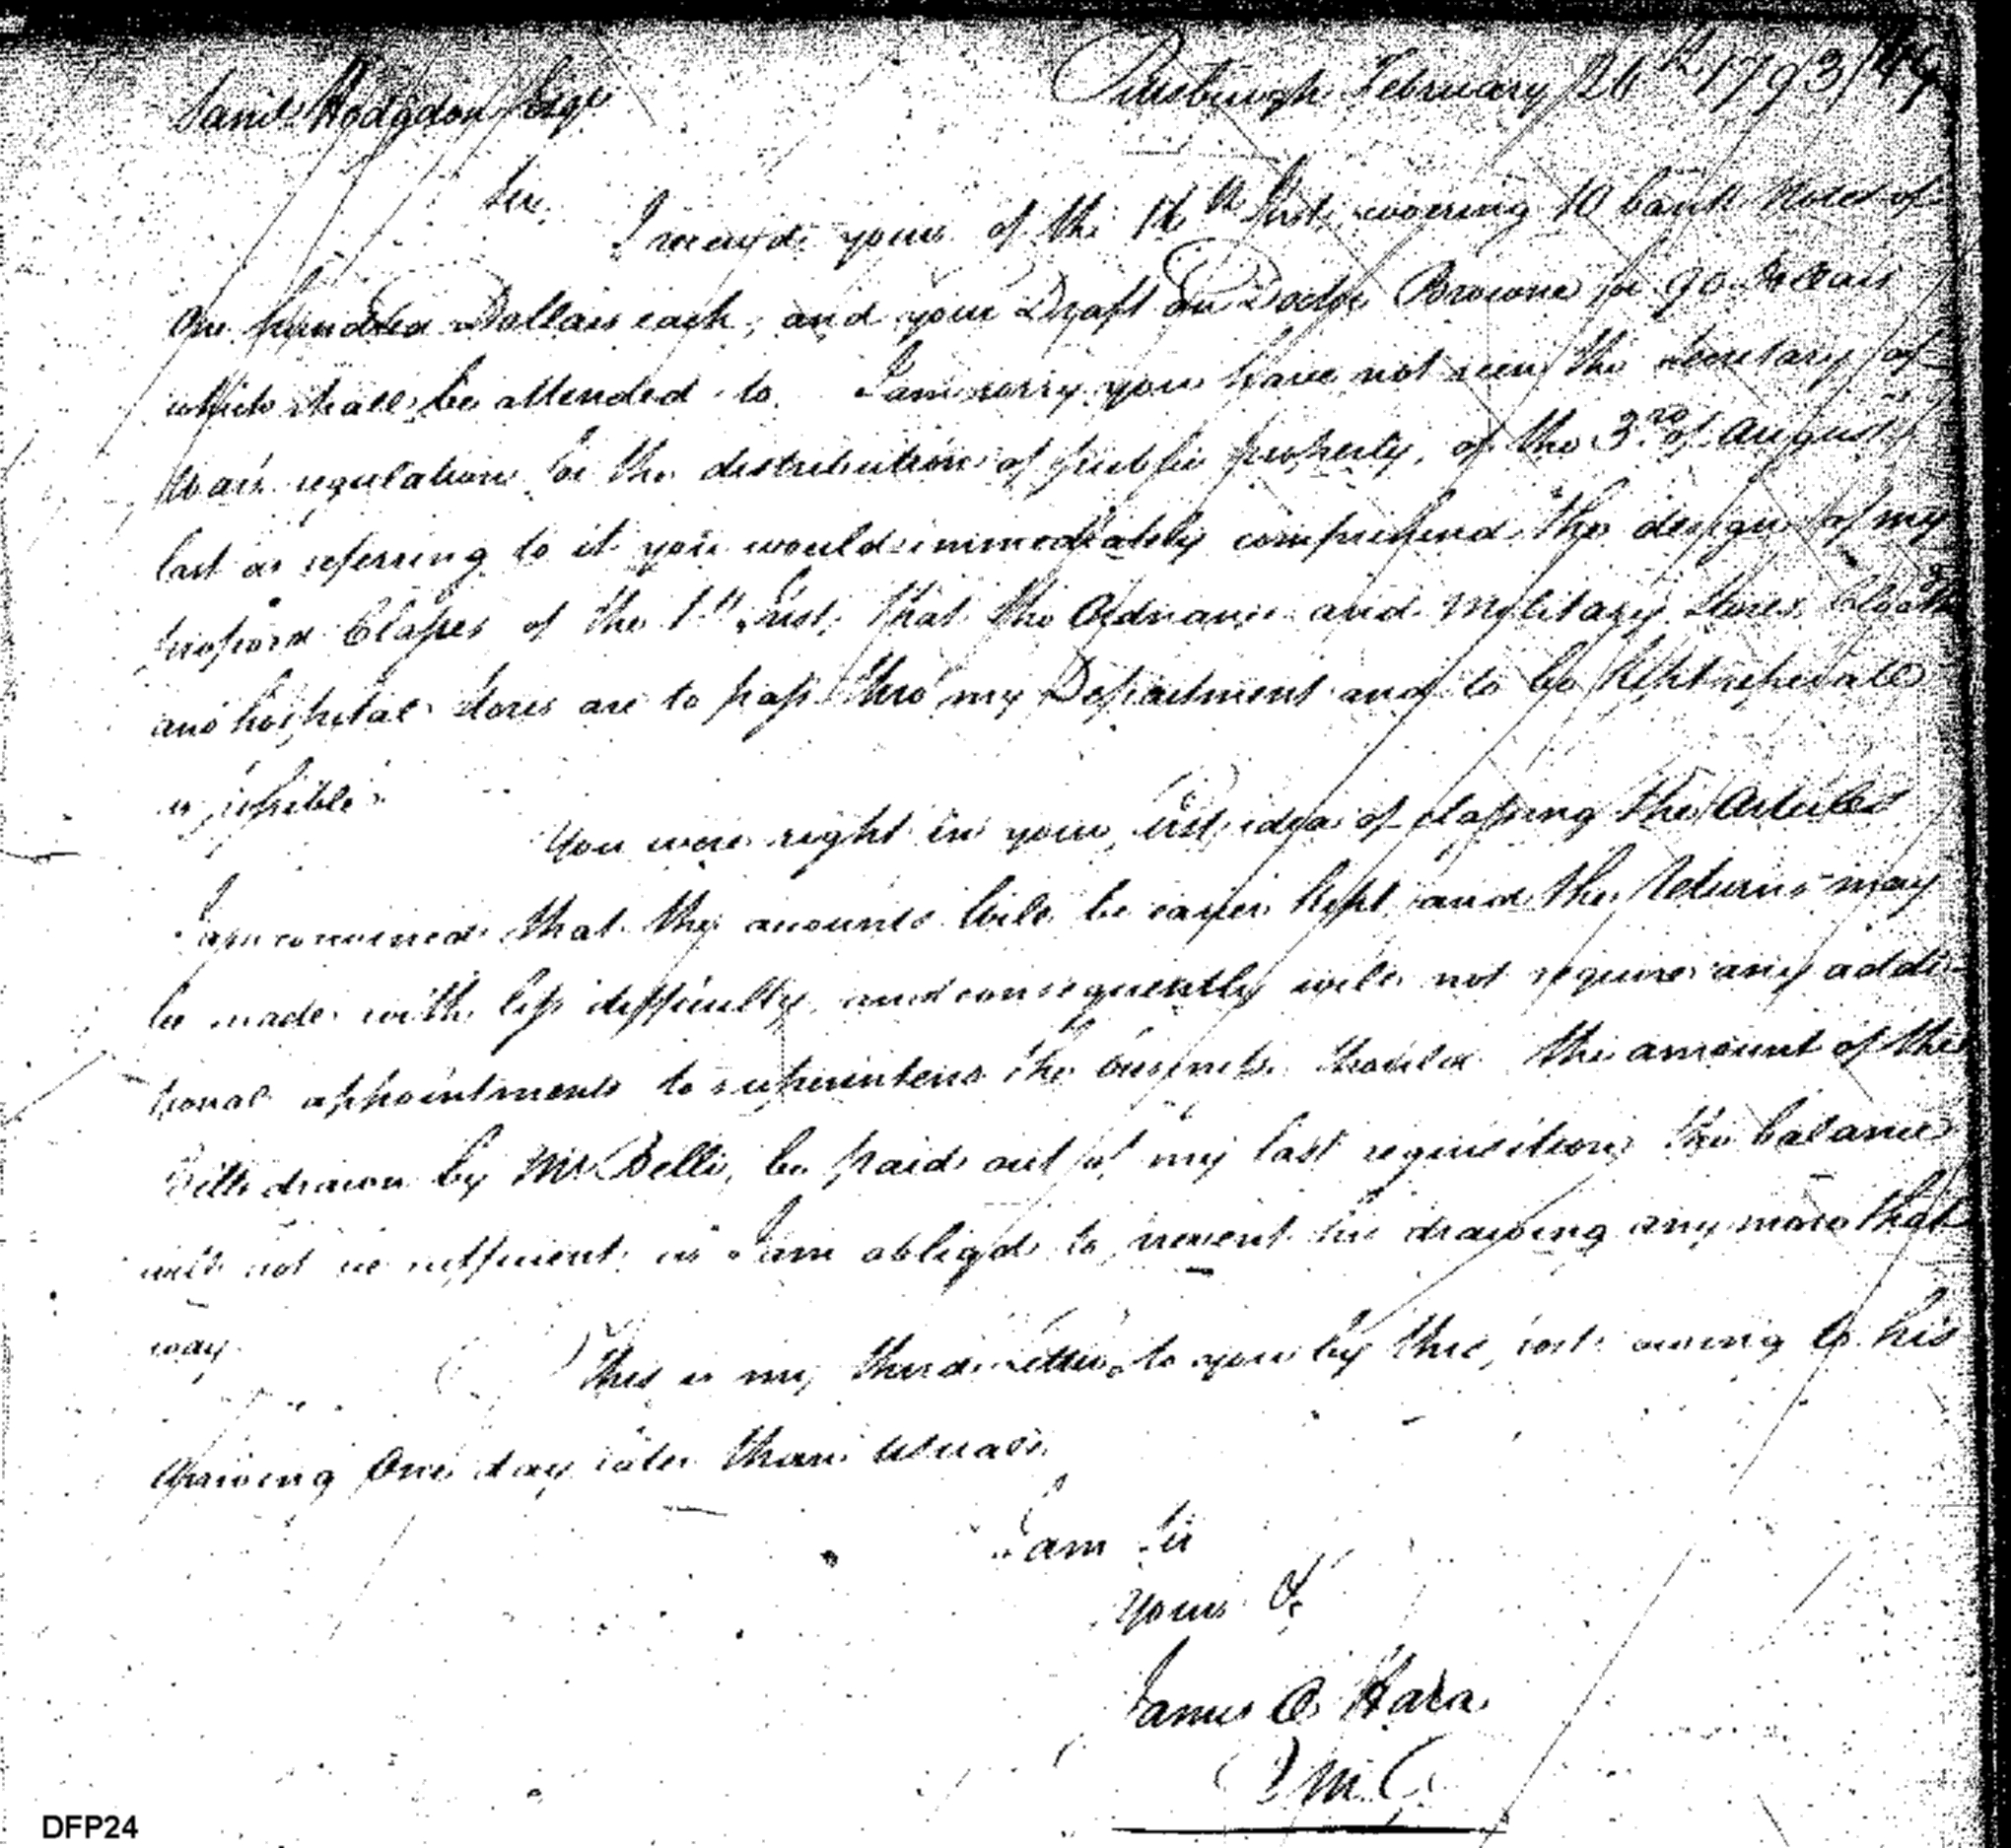 Pittsburgh February 26th 1793
Saml Hodgdon Esqr
Sir
I received yours of the 16th Inst. covering 10 bank Notes of
One hundred Dollars each, and your Draft on Doctr Browne for 90 Dollars
which shall be attended to. I am sorry you have not seen the Secretary of
Wars regulations for the distribution of public property, of the 3rd of August
last as referring to it you would immediately comprehend the design of my
proposed Classes of the 1st Inst. that the Ordnance and Military Stores
and hospital stores are to pass thro my Department and to be kept seperate
as possible.
You were right in your first idea of classing the Articles
I am convinced that the accounts will be easier kept and the Returns may
be made with less difficulty and consequently will not require any addi-
tional appointments to superintend the business. Should the amount of the
Bills drawn by Mr Belli, be paid out of my last requisition, the balance
will not be sufficient, as I am obliged to prevent his drawing any more that
way.
This is my third letter to you by this post owing to his
arriving One day later than usual.
I am Sir
Yours &c
James O Hara
Q M G
DFP24